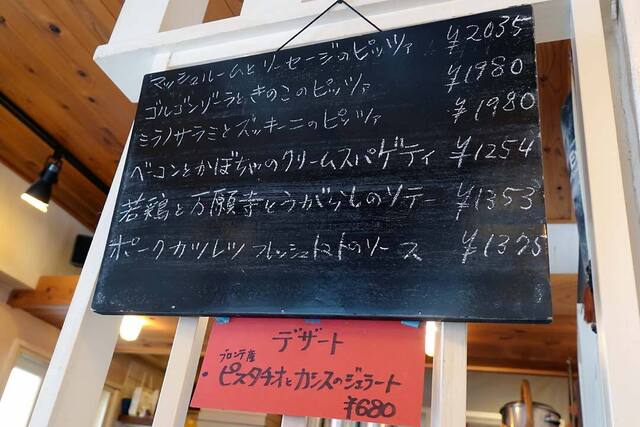 マッシュルームとソーセージのピッツァ ¥2035
ゴルゴンゾーラときのこのピッツァ ¥1980
ミラノサラミとズッキーニのピッツァ ¥1980
ベーコンとかぼちゃのクリームスパゲティ ¥1254
若鶏と万願寺とうがらしのソテー ¥1353
ポークカツレツ フレッシュトマトのソース ¥1375
デザート
ブロンテ産
・ピスタチオとカシスのジェラート
¥680